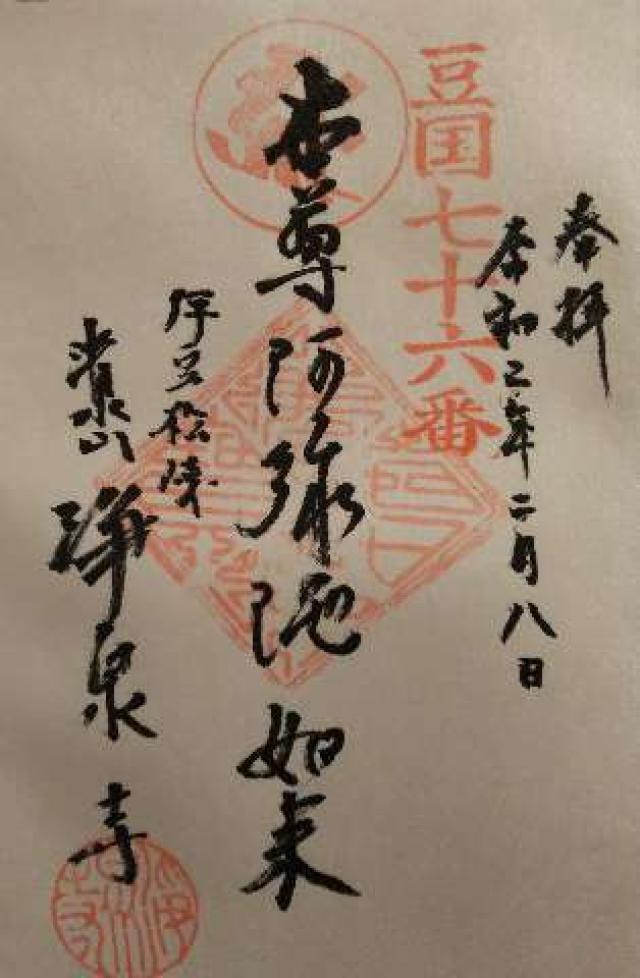 奉拝
令和三年二月八日
豆国七十六番
本尊阿弥陀如来
伊豆松崎
浄泉寺